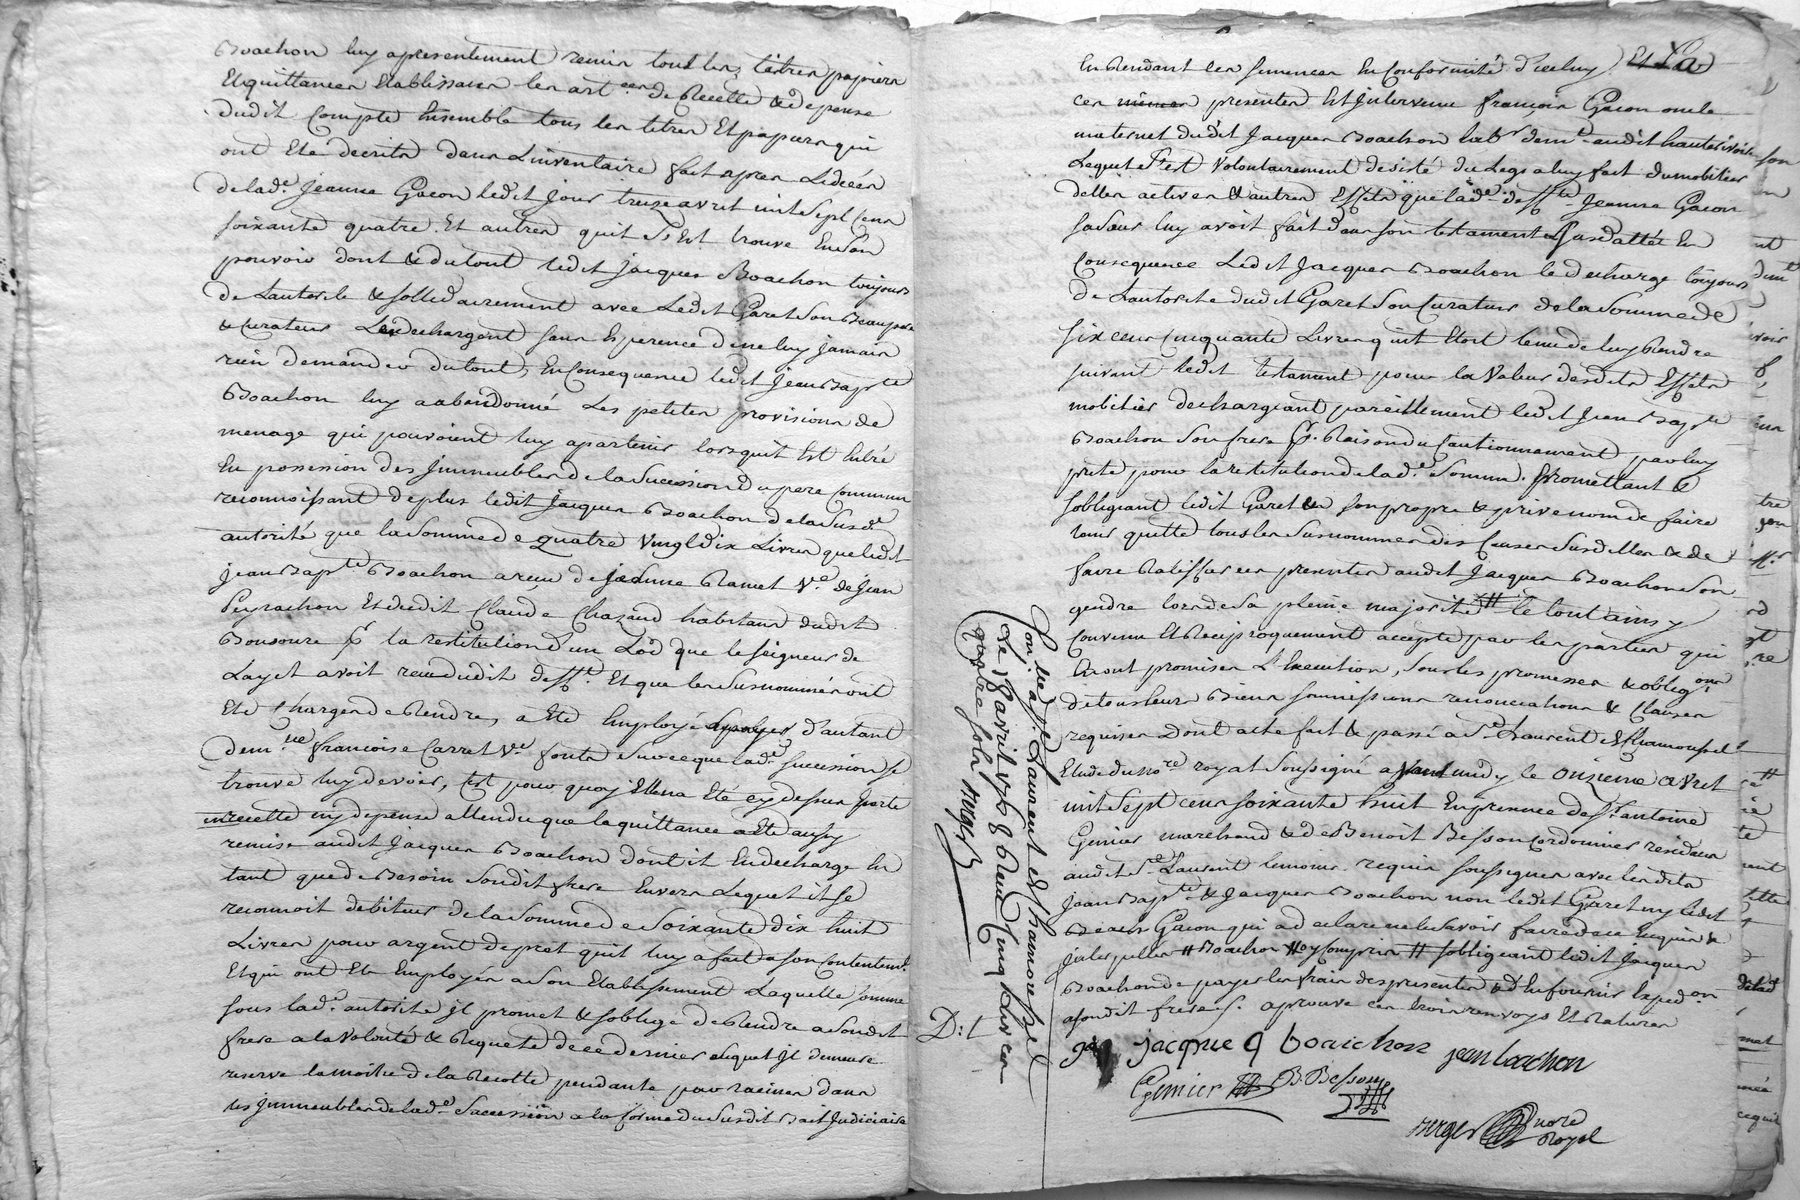 Boachon luy a presentement remis tous les titres papiers
Et quittances Etablissant les art.cles de Recette & depense
dudit Compte Ensemble tous les titres Et papiers qui
ont Eté decrits dans L'inventaire fait apres Ledécés
de lad.e Jeanne Gacon ledit jour treize avril mil sept Cens
soixante quatre Et autres quil S'Est trouvé En Son
pouvoir dont & du tout ledit Jacques Boachon toujours
de Lautorité & sollidairement avec Ledit Garet Son Beaupere
& Curateur Le dechargent sans Esperence de ne luy jamais
rien demander du tout, En Consequence ledit Jean Bap.te
Boachon luy a abandonné les petites provisions de
menage qui pouvoient luy apartenir lorsquil Est Entré
En possession des Jmmeubles de la Sucession du pere Commun
reconnoissant de plus ledit Jacques Boachon de la Susd.e
autorité que la Somme de quatre Vingt dix Livres que ledit
Jean Bap.te Boachon a reçu de Jeanne Ramet V.e de Jean
Peyrachon Et dudit Claude Chazaud habitans dudit
Bonsoure p.r la restitution d'un Lod que le seigneur de
Layet avoit reçu dudit deff.t Et que les Susnommés ont
Eté Chargés de Rendre, a Eté Employé a payer d'autant
dem.lle francoise Carret V.e fonta Suvce que lad.e succession se
trouve luy devoir, C'est pour quoy Elle na Eté cy dessus porté
en recette ny depense attendu que la quittance a Eté aussy
remise audit Jacques Boachon dont il En decharge En
tant que de Besoin Sondit frere Envers Lequel il se
reconnoit debiteur de la Somme de Soixante dix huit
Livres pour argent de pret quil luy a fait a son Contentem.t
Et qui ont Eté Employés a Son Etablissement Laquelle somme
sous lad.e autorité il promet & s'oblige de Rendre a Sondit
frere a la Volonté & Requete de ce dernier auquel Jl demeure
reservé la moitié de la Recolte pendante par racines dans
les Jmmeubles de lad.e Succession a la forme du Susdit Bail Judiciaire
En Rendant les semences En Conformité d'iceluy Et La
ces memes presentes Est Intervenu françois Gacon oncle
maternel dudit Jacques Boachon lab.r dem.t audit hauterivoire
Lequel S'est volontairement desisté du Legs a luy fait du mobilier
dettes actives & autres Effets que lad.e deff.te Jeanne Gacon
sa Sœur luy avoit fait dans son testament Susdatté En
Consequence Ledit Jacques Boachon le decharge toujours
de Lautorité dudit Garet Son Curateur de la Somme de
six cens Cinquante Livres quil Etoit tenu de luy Rendre
suivant ledit testament pour la Valeur desdits Effets
mobiliers dechargeant pareillement ledit Jean Bap.te
Boachon Son frere p.r Raison du Cautionnement par luy
preté pour la restitution de lad.e Somme. promettant &
s'obligeant ledit Garet En son propre & privé nom de faire
tenir quitte tous les Susnommés des Causes Susdites & de
faire Ratiffier ces presentes audit Jacques Boachon Son
gendre lors de Sa pleine majorité # le tout ainsy
Convenu Et Reciproquement accepté par les parties qui
En ont promises L'Execution, sous les promesses & oblig.ons
de tous leurs Biens soumissions renonciations & Clauses
requises Dont acte fait & passé a S.t Laurent de Chamousset
Etude du no.re royal Soussigné avant midy le onzieme avril
mil Sept cens soixante huit En presence de S.r antoine
Genier marchand & de Benoit Besson Cordonnier residens
audit S.t Laurent temoins requis soussignés avec lesdits
Jean Bap.te & Jacques Boachon non ledit Garet ny ledit
Gacon qui a declaré ne le Savoir faire de ce Enquis &
Jnterpellés # Boachon # y Compris # s'obligeant ledit Jacques
Boachon de payer les frais des presentes & d'En fournir Exped.on
a Sondit frere /. aprouvé ces trois renvoys Et Ratures
jacque q boaichon jean bachon
Genier B. Besson
Berger nore
Royal
Con.lé a S.t Laurent de Chamousset
ce 18 avril 1768 Reçu Cinq Livres
quatre sols Berger
D: 1